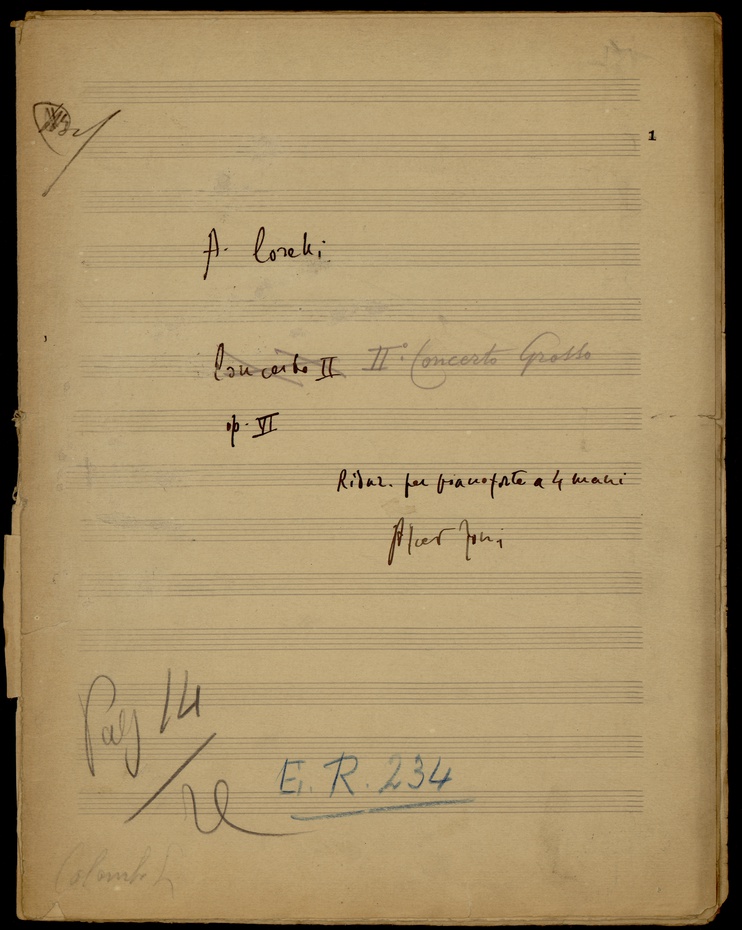 1
A. Corelli
Concerto II II° Concerto Grosso
op. VI
Riduz. per pianoforte a 4 mani
Pag 14
E. R. 234